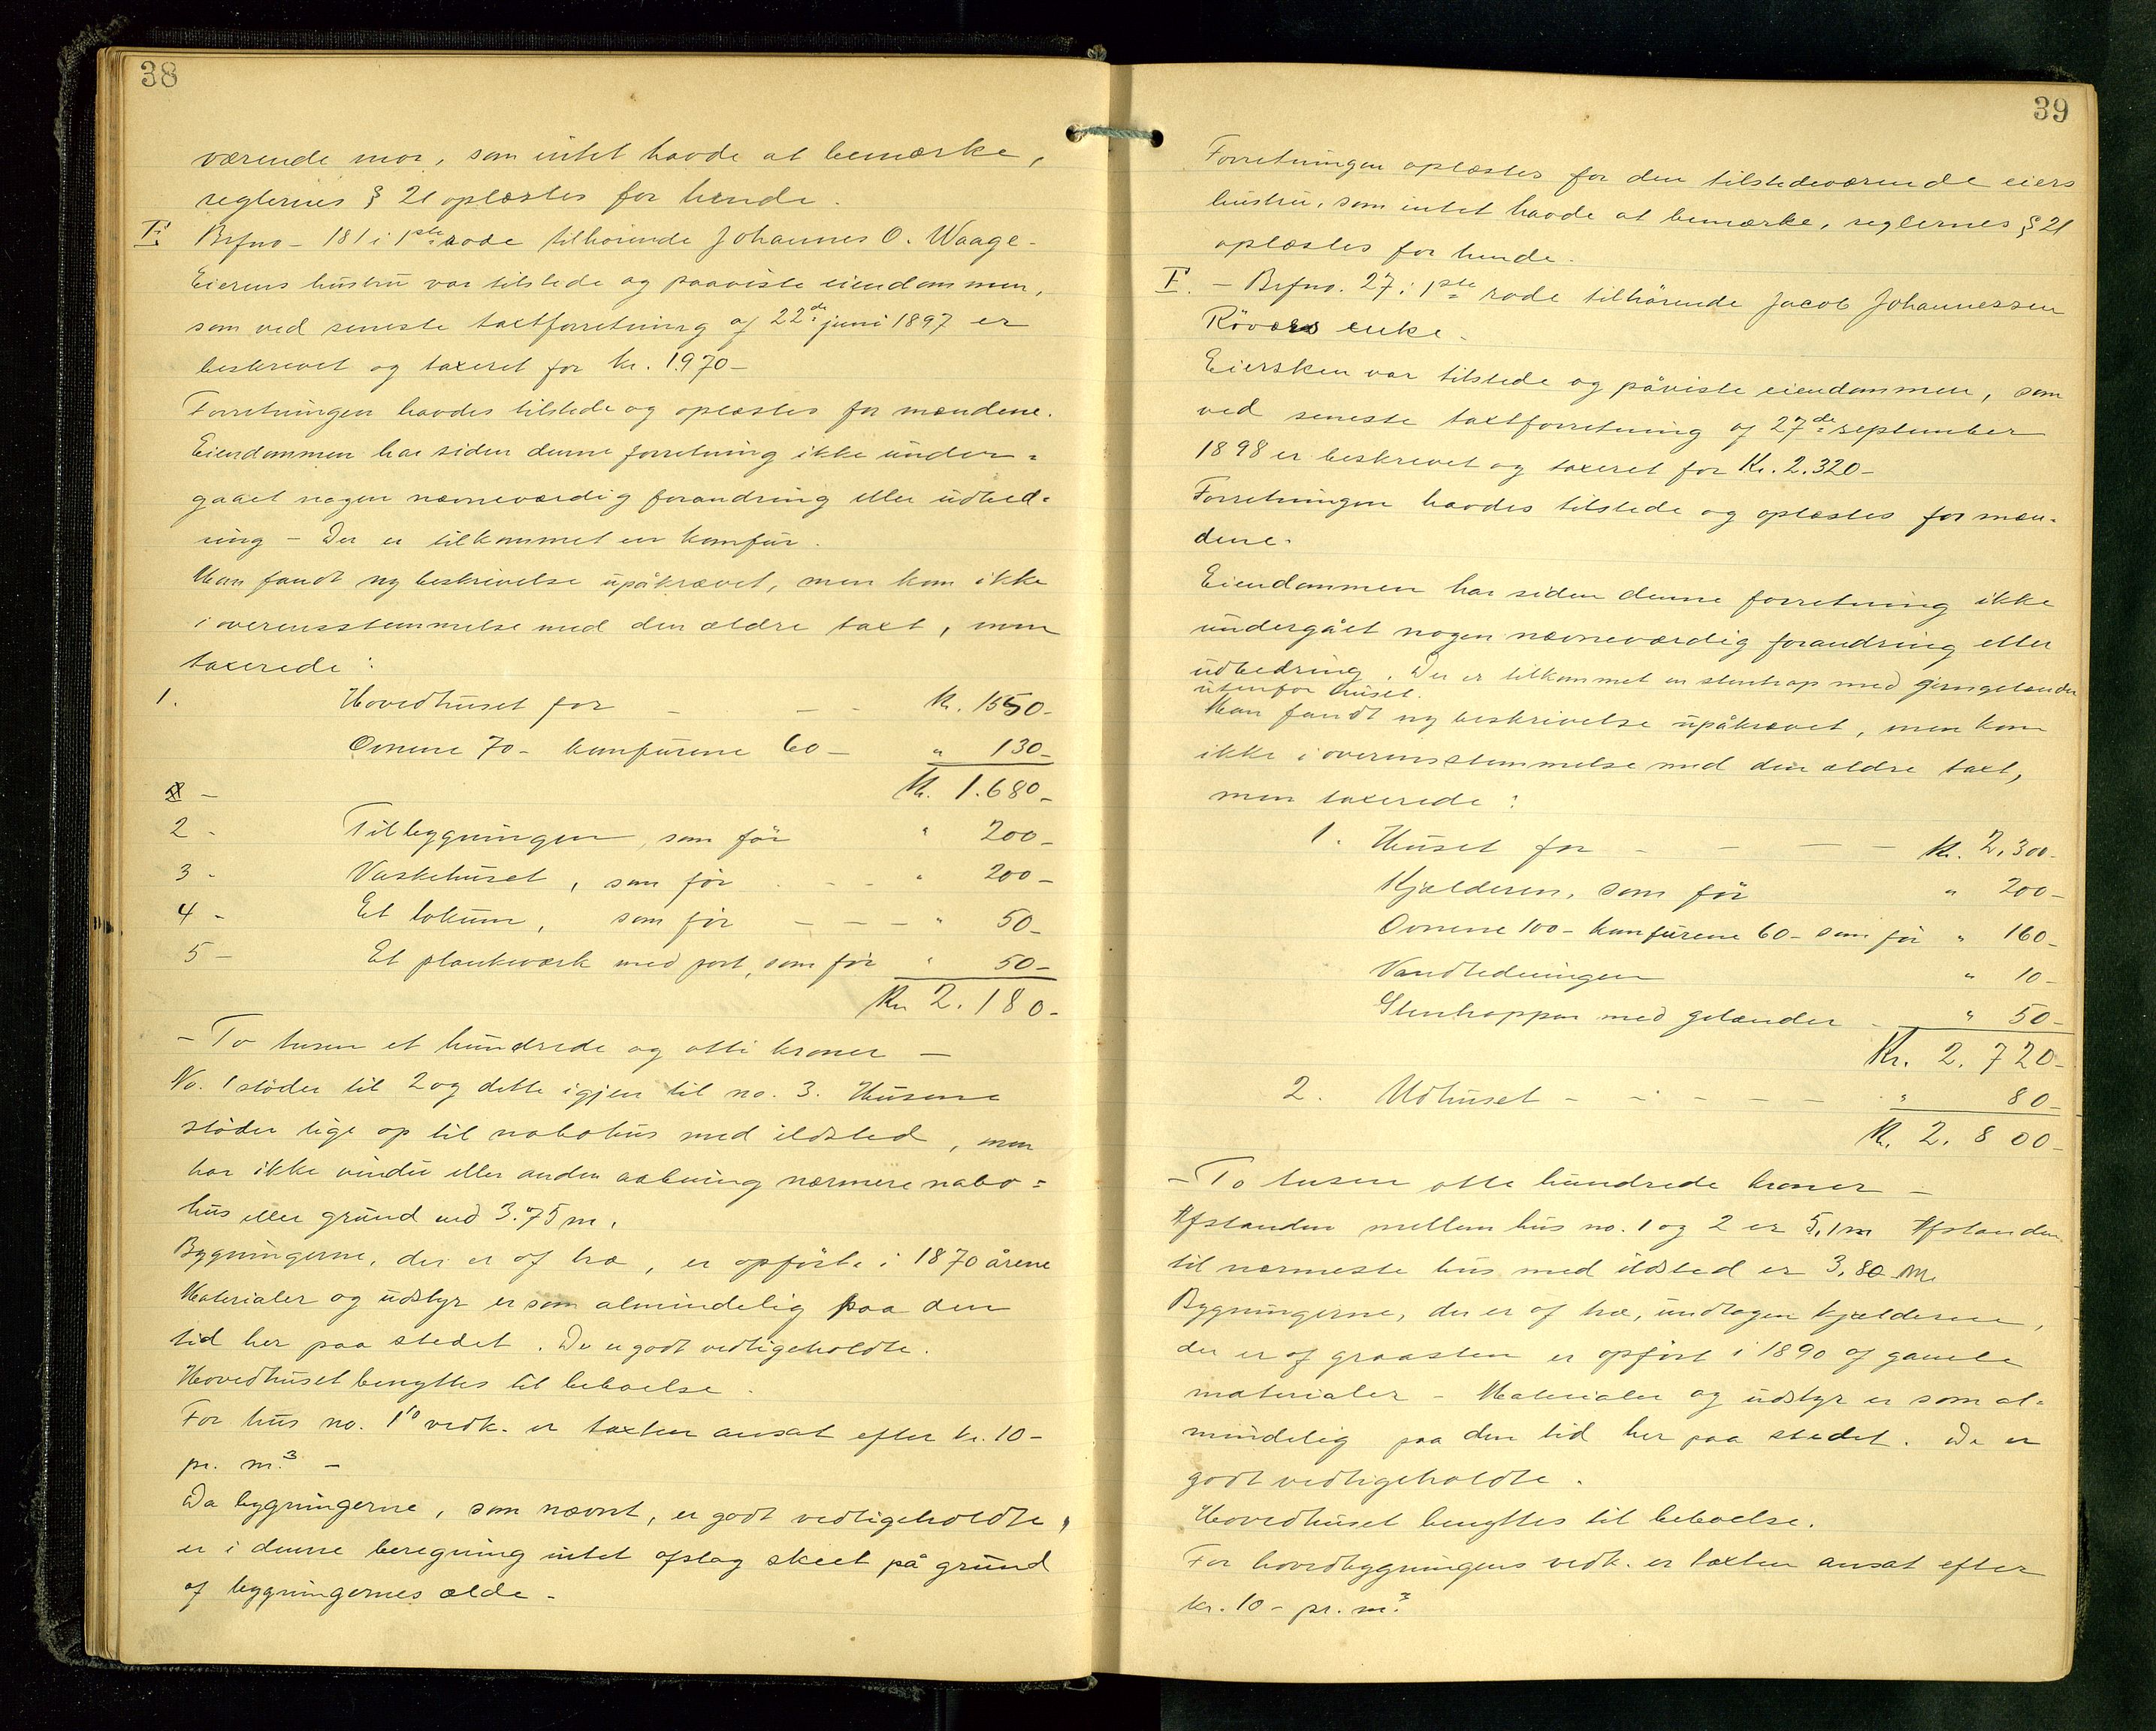 38
værende mor, som intet havde at bemærke,
reglernes § 21 oplæstes for hende.
F. Brfno- 181 i 1ste rode tilhörende Johannes O. Waage-
Eierens hustru var tilstede og paaviste eiendommen,
som ved seneste taxtforretning af 22de juni 1897 er
beskrevet og taxeret for kr. 1.970-
Forretningen havdes tilstede og oplæstes for mændene.
Eiendommen har siden denne forretning ikke under=
gaaet nogen nævneværdig forandring eller udbed=
ring - Der er tilkommet en komfur.
Man fandt ny beskrivelse upåkrævet, men kom ikke
i overensstemmelse med den ældre taxt, men
taxerede:
1. Hovedhuset for - - - Kr. 1550-
Ovnene 70- komfurene 60- " 130-
Kr. 1.680-
2 - Tilbygningen, som för " 200-
3 - Vaskehuset, som för - - - " 200-
4 - Et lokum, som för - - - " 50-
5 - Et plankeværk med port, som för " 50-
Kr. 2.180-
- To tusen et hundrede og otti kroner -
No. 1 stöder til 2 og dette igjen til no. 3. Husene
stöder lige op til nabohus med ildsted, men
har ikke vindu eller anden aabning nærmere nabo=
hus eller grund end 3.75 m.
Bygningerne, der er af træ, er opförte i 1870 årene
Materialer og udstyr er som almindelig paa den
tid her paa stedet. De er godt vedligeholdte.
Hovedhuset benyttes til beboelse.
For hus no. 1's vedk. er taxten ansat efter kr. 10-
pr. m.3 -
Da bygningerne, som nævnt, er godt vedligeholdte,
er i denne beregning intet afslag skeet på grund
af bygningernes ælde-
39
Forretningen oplæstes for den tilstedeværende eiers
hustru, som intet havde at bemærke, reglernes § 21
oplæstes for hende.
F. - Brfno. 27 i 1ste rode tilhörende Jacob Johannessen
Röværs enke.
Eiersken var tilstede og påviste eiendommen, som
ved seneste taxtforretning af 27de september
1898 er beskrevet og taxeret for Kr. 2.320-
Forretningen havdes tilstede og oplæstes for mæn-
dene.
Eiendommen har siden denne forretning ikke
undergået nogen nævneværdig forandring eller
udbedring. Der er tilkommet en stentrap med jerngelænder
utenfor huset.
Man fandt ny beskrivelse upåkrævet, men kom
ikke i overensstemmelse med den ældre taxt,
men taxerede:
1. Huset for - - - - Kr. 2.300-
Kjælderen, som för " 200-
Ovnene 100- komfurene 60- som för " 160-
Vandledningen " 10-
Stentrappen med gelænder - " 50-
Kr. 2.720-
2. Udhuset - - - - - " 80-
Kr. 2.800-
- To tusen otte hundrede kroner -
Afstanden mellem hus no. 1 og 2 er 5,1 m Afstanden
til nærmeste hus med ildsted er 3,80 m.
Bygningerne, der er af træ, undtagen kjælderen,
der er af graasten er opfört i 1890 af gamle
materialer - Materialer og udstyr er som al-
mindelig paa den tid her paa stedet. De er
godt vedligeholdte.
Hovedhuset benyttes til beboelse.
For hovedbygningens vedk. er taxten ansat efter
kr. 10- pr. m.3